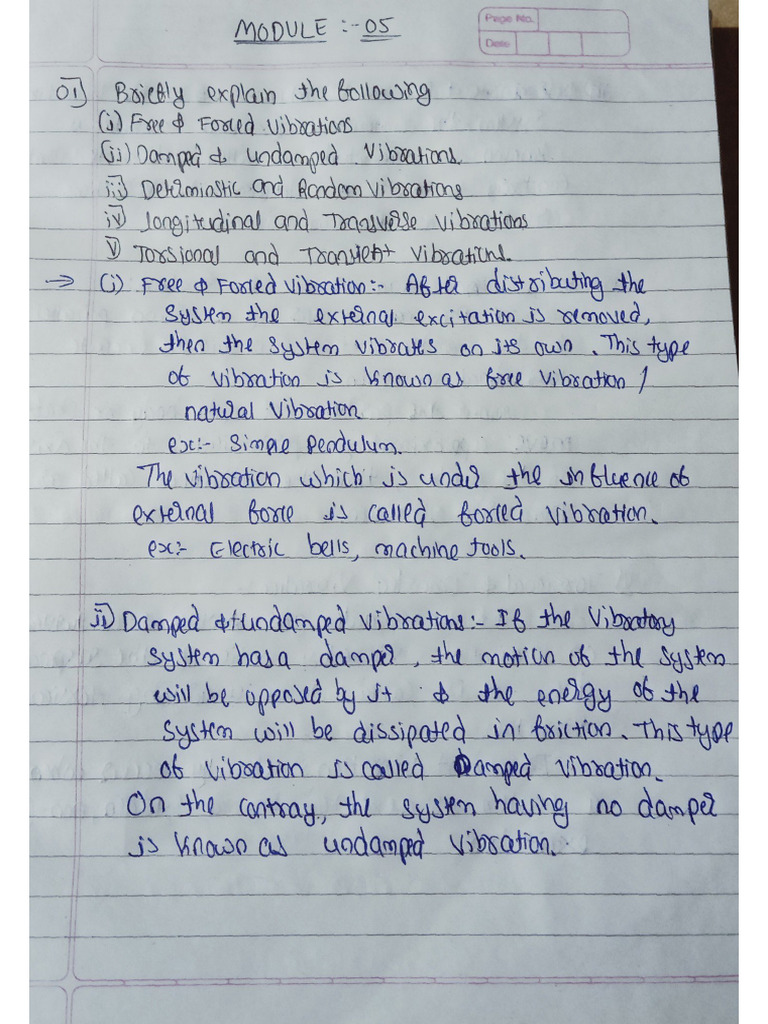 MODULE :- 05
Page No.
Date
01) Briefly explain the following
(i) Free & Forced Vibrations
(ii) Damped & undamped Vibrations.
iii) Deterministic and Random Vibrations
iv) longitudinal and Transverse Vibrations
v) Torsional and Transient Vibrations.
→ (i) Free & Forced Vibration:- After distributing the
System the external excitation is removed,
then the System Vibrates on its own. This type
of Vibration is known as free Vibration /
natural Vibration.
ex:- Simple Pendulum.
The Vibration which is under the influence of
external force is called forced Vibration.
ex:- Electric bells, machine tools.
ii) Damped & undamped Vibrations:- If the Vibratory
System has a damper, the motion of the System
will be opposed by it & the energy of the
System will be dissipated in friction. This type
of Vibration is called Damped Vibration.
On the contray, the System having no damper
is known as undamped Vibration.